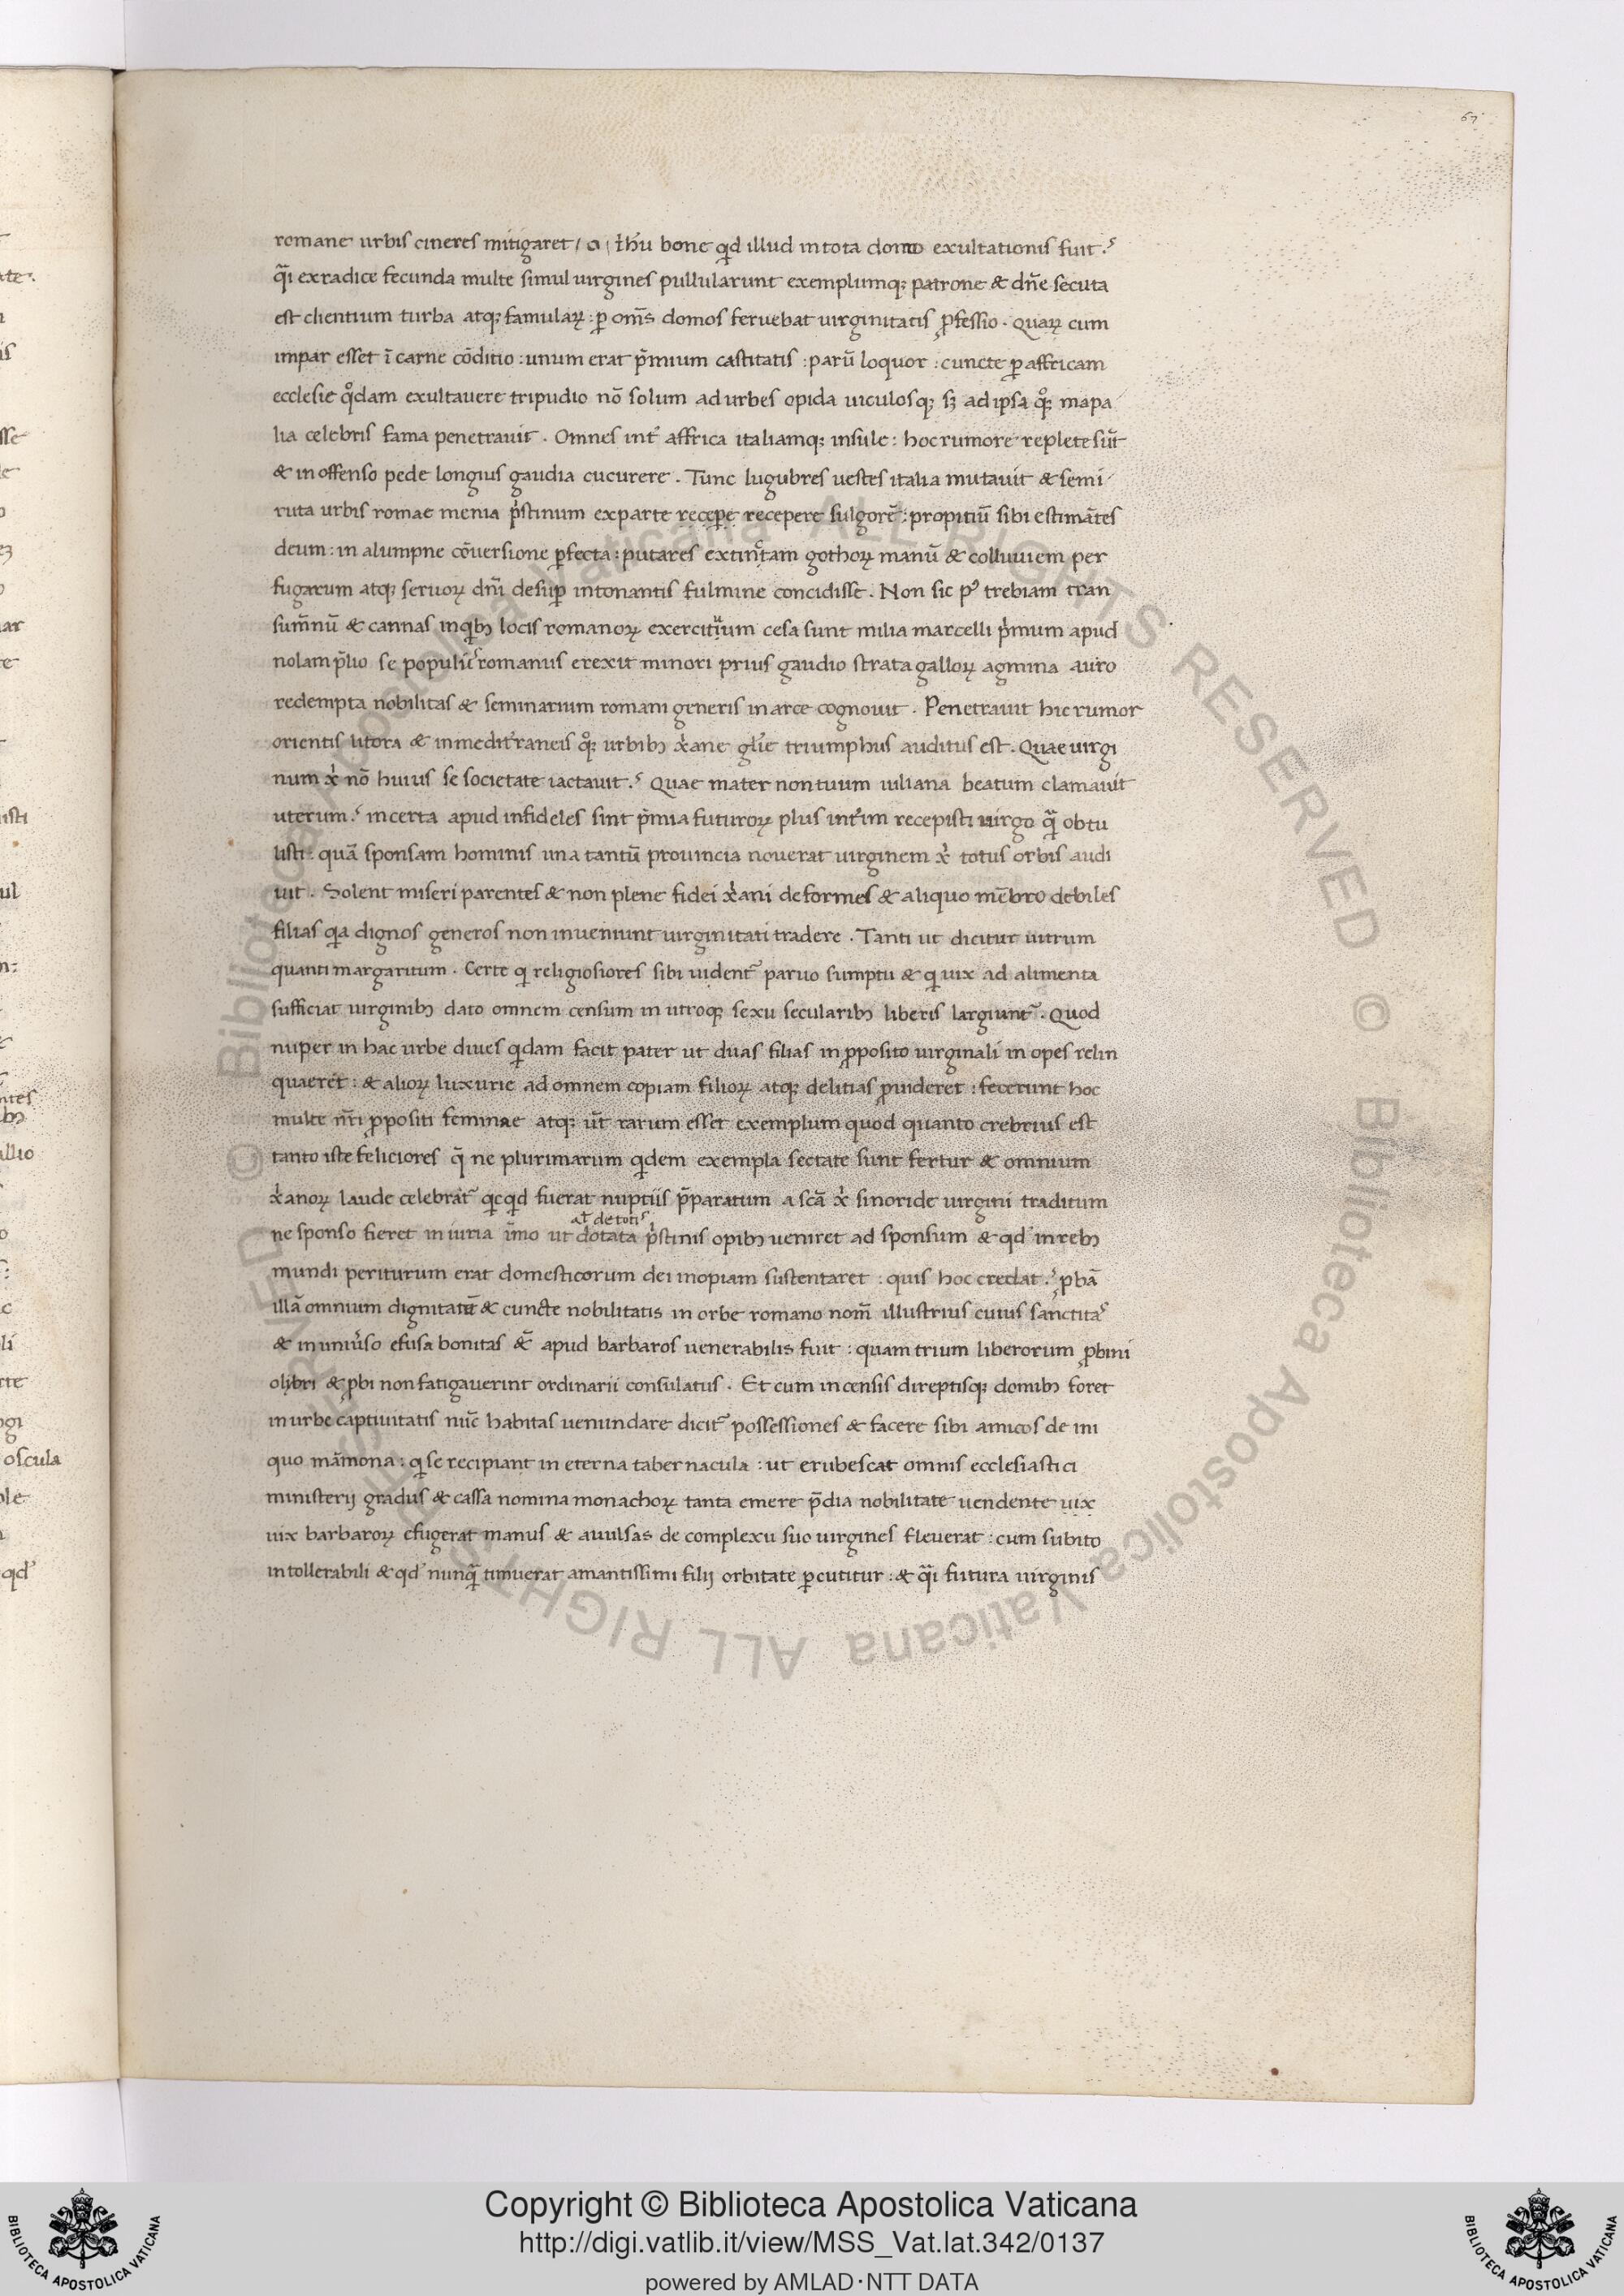 67
romane urbis cineres mitigaret / o / ih̄u bone qd illud in tota domo exultationis fuit?
q̄i ex radice fecunda multe simul uirgines pullularunt exemplumqꝫ patrone & dn̄e secuta
est clientium turba atqꝫ famulaꝝ : ꝑ om̄s domos feruebat uirginitatis ꝓfessio . Quaꝝ cum
impar esset ī carne cōditio : unum erat p̄mium castitatis : parū loquor : cuncte ꝑ affricam
ecclesie qͦdam exultauere tripudio nō solum ad urbes opida uiculosqꝫ sꝫ ad ipsa qͦqꝫ mapa
lia celebris fama penetrauit . Omnes int̄ affrica italiamqꝫ insule : hoc rumore replete sūt
& in offenso pede longius gaudia cucurere . Tunc lugubres uestes italia mutauit & semi
ruta urbis romae menia pͥstinum ex parte recepe recepere fulgorē : propitiū sibi estimātes
deum : in alumpne cōuersione ꝑfecta : putares extinctam gothoꝝ manū & colluuiem per
fugarum atqꝫ seruoꝝ dn̄i desuꝑ intonantis fulmine concidisse . Non sic pꝰ trebiam tran
sum̄nū & cannas in qͥbꝫ locis romanoꝝ exercituum cesa sunt milia marcelli pͥmum apud
nolam p̄lio se populus romanus erexit minori prius gaudio strata galloꝝ agmina auro
redempta nobilitas & seminarium romani generis in arce cognouit . Penetrauit hic rumor
orientis litora & in medit̄raneis qͦqꝫ urbibꝫ xͥane gl̄ie triumphus auditus est . Quae uirgi
num xͥ nō huius se societate iactauit? Quae mater non tuum iuliana beatum clamauit
uterum? incerta apud infideles sint p̄mia futuroꝝ plus int̄im recepisti uirgo q̄ obtu
listi : quā sponsam hominis una tantū prouincia nouerat uirginem xͥ totus orbis audi
uit . Solent miseri parentes & non plene fidei xͥani deformes & aliquo mēbro debiles
filias qa dignos generos non inueniunt uirginitati tradere . Tanti ut dicitur uitrum
quanti margaritum . Certe q religiosiores sibi uident᷑ paruo sumptu & q uix ad alimenta
sufficiat uirginibꝫ dato omnem censum in utroqꝫ sexu secularibꝫ liberis largiunt᷑ . Quod
nuper in hac urbe diues qdam facit pater ut duas filias in ꝓposito uirginali in opes relin
quaeret : & alioꝝ luxurie ad omnem copiam filioꝝ atqꝫ delitias ꝓuideret : fecerunt hoc
multe nr̄i ꝓpositi feminae atqꝫ ut̄ rarum esset exemplum quod quanto crebrius est
tanto iste feliciores q̄ ne plurimarum qdem exempla sectate sunt fertur & omnium
xͥanoꝝ laude celebrat᷑ qcqd fuerat nuptiis p̄paratum a scā xͥ sinoride uirgini traditum
al̄ de totis
ne sponso fieret in iuria īmo ut dotata pͥstinis opibꝫ ueniret ad sponsum & qd in rebꝫ
mundi periturum erat domesticorum dei inopiam sustentaret : quis hoc credat? ꝓbā
illā omnium dignitatū & cuncte nobilitatis in orbe romano nom̄ illustrius cuius sanctitas
& in uniūso efusa bonitas &̄ apud barbaros uenerabilis fuit : quam trium liberorum ꝓbini
olibri & ꝓbi non fatigauerint ordinarii consulatus . Et cum incensis direptisqꝫ domibꝫ foret
in urbe captiuitatis nūc habitas uenundare dicit᷑ possessiones & facere sibi amicos de ini
quo māmona : q se recipiant in eterna tabernacula : ut erubescat omnis ecclesiastici
ministerij gradus & cassa nomina monachoꝝ tanta emere p̄dia nobilitate uendente uix
uix barbaroꝝ efugerat manus & auulsas de complexu suo uirgines fleuerat : cum subito
intollerabili & qd nunq̄ timuerat amantissimi filij orbitate ꝑcutitur : & q̄i futura uirginis
oscula
© Biblioteca Apostolica Vaticana ALL RIGHTS RESERVED © Biblioteca Apostolica Vaticana ALL RIGHTS RESERVED
Copyright © Biblioteca Apostolica Vaticana
http://digi.vatlib.it/view/MSS_Vat.lat.342/0137
powered by AMLAD·NTT DATA
BIBLIOTECA APOSTOLICA VATICANA
BIBLIOTECA APOSTOLICA VATICANA